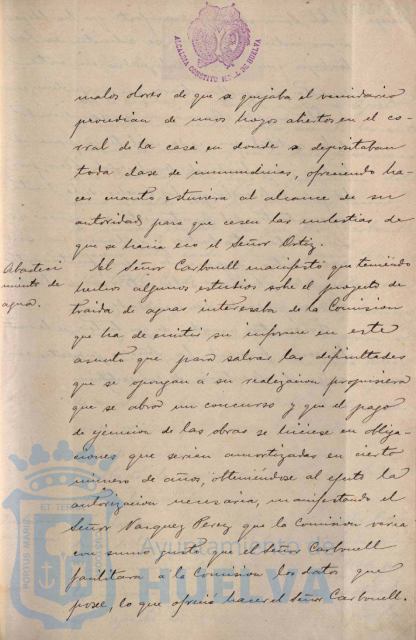 ALCALDIA CONSTITUCIONAL DE HUELVA
malos olores de que se quejaba el vecindario
procedian de unos hoyos abiertos en el co-
rral de la casa en donde se depositaban
toda clase de inmundicias, ofreciendo ha-
cer cuanto estuviera al alcance de su
autoridad para que cesen las molestias de
que se hacia eco el Señor Ortiz.
Abasteci
miento de
agua.
El Señor Carbonell manifestó que teniendo
hechos algunos estudios sobre el proyecto de
traida de aguas interesaba de la Comision
que ha de emitir su informe en este
asunto que para salvar las dificultades
que se opongan á su realizacion propusiera
que se abra un concurso y que el pago
de ejecucion de las obras se hiciese en obliga-
ciones que serian amortizadas en cierto
número de años, obteniéndose al efecto la
autorizacion necesaria, manifestando el
Señor Vazquez Perez que la Comision veria
con sumo gusto que el Señor Carbonell
facilitara a la Comision los datos que
posee, lo que ofreció hacer el Señor Carbonell.
PORTUS MARIS ET TERRAE
Ayuntamiento de
HUELVA